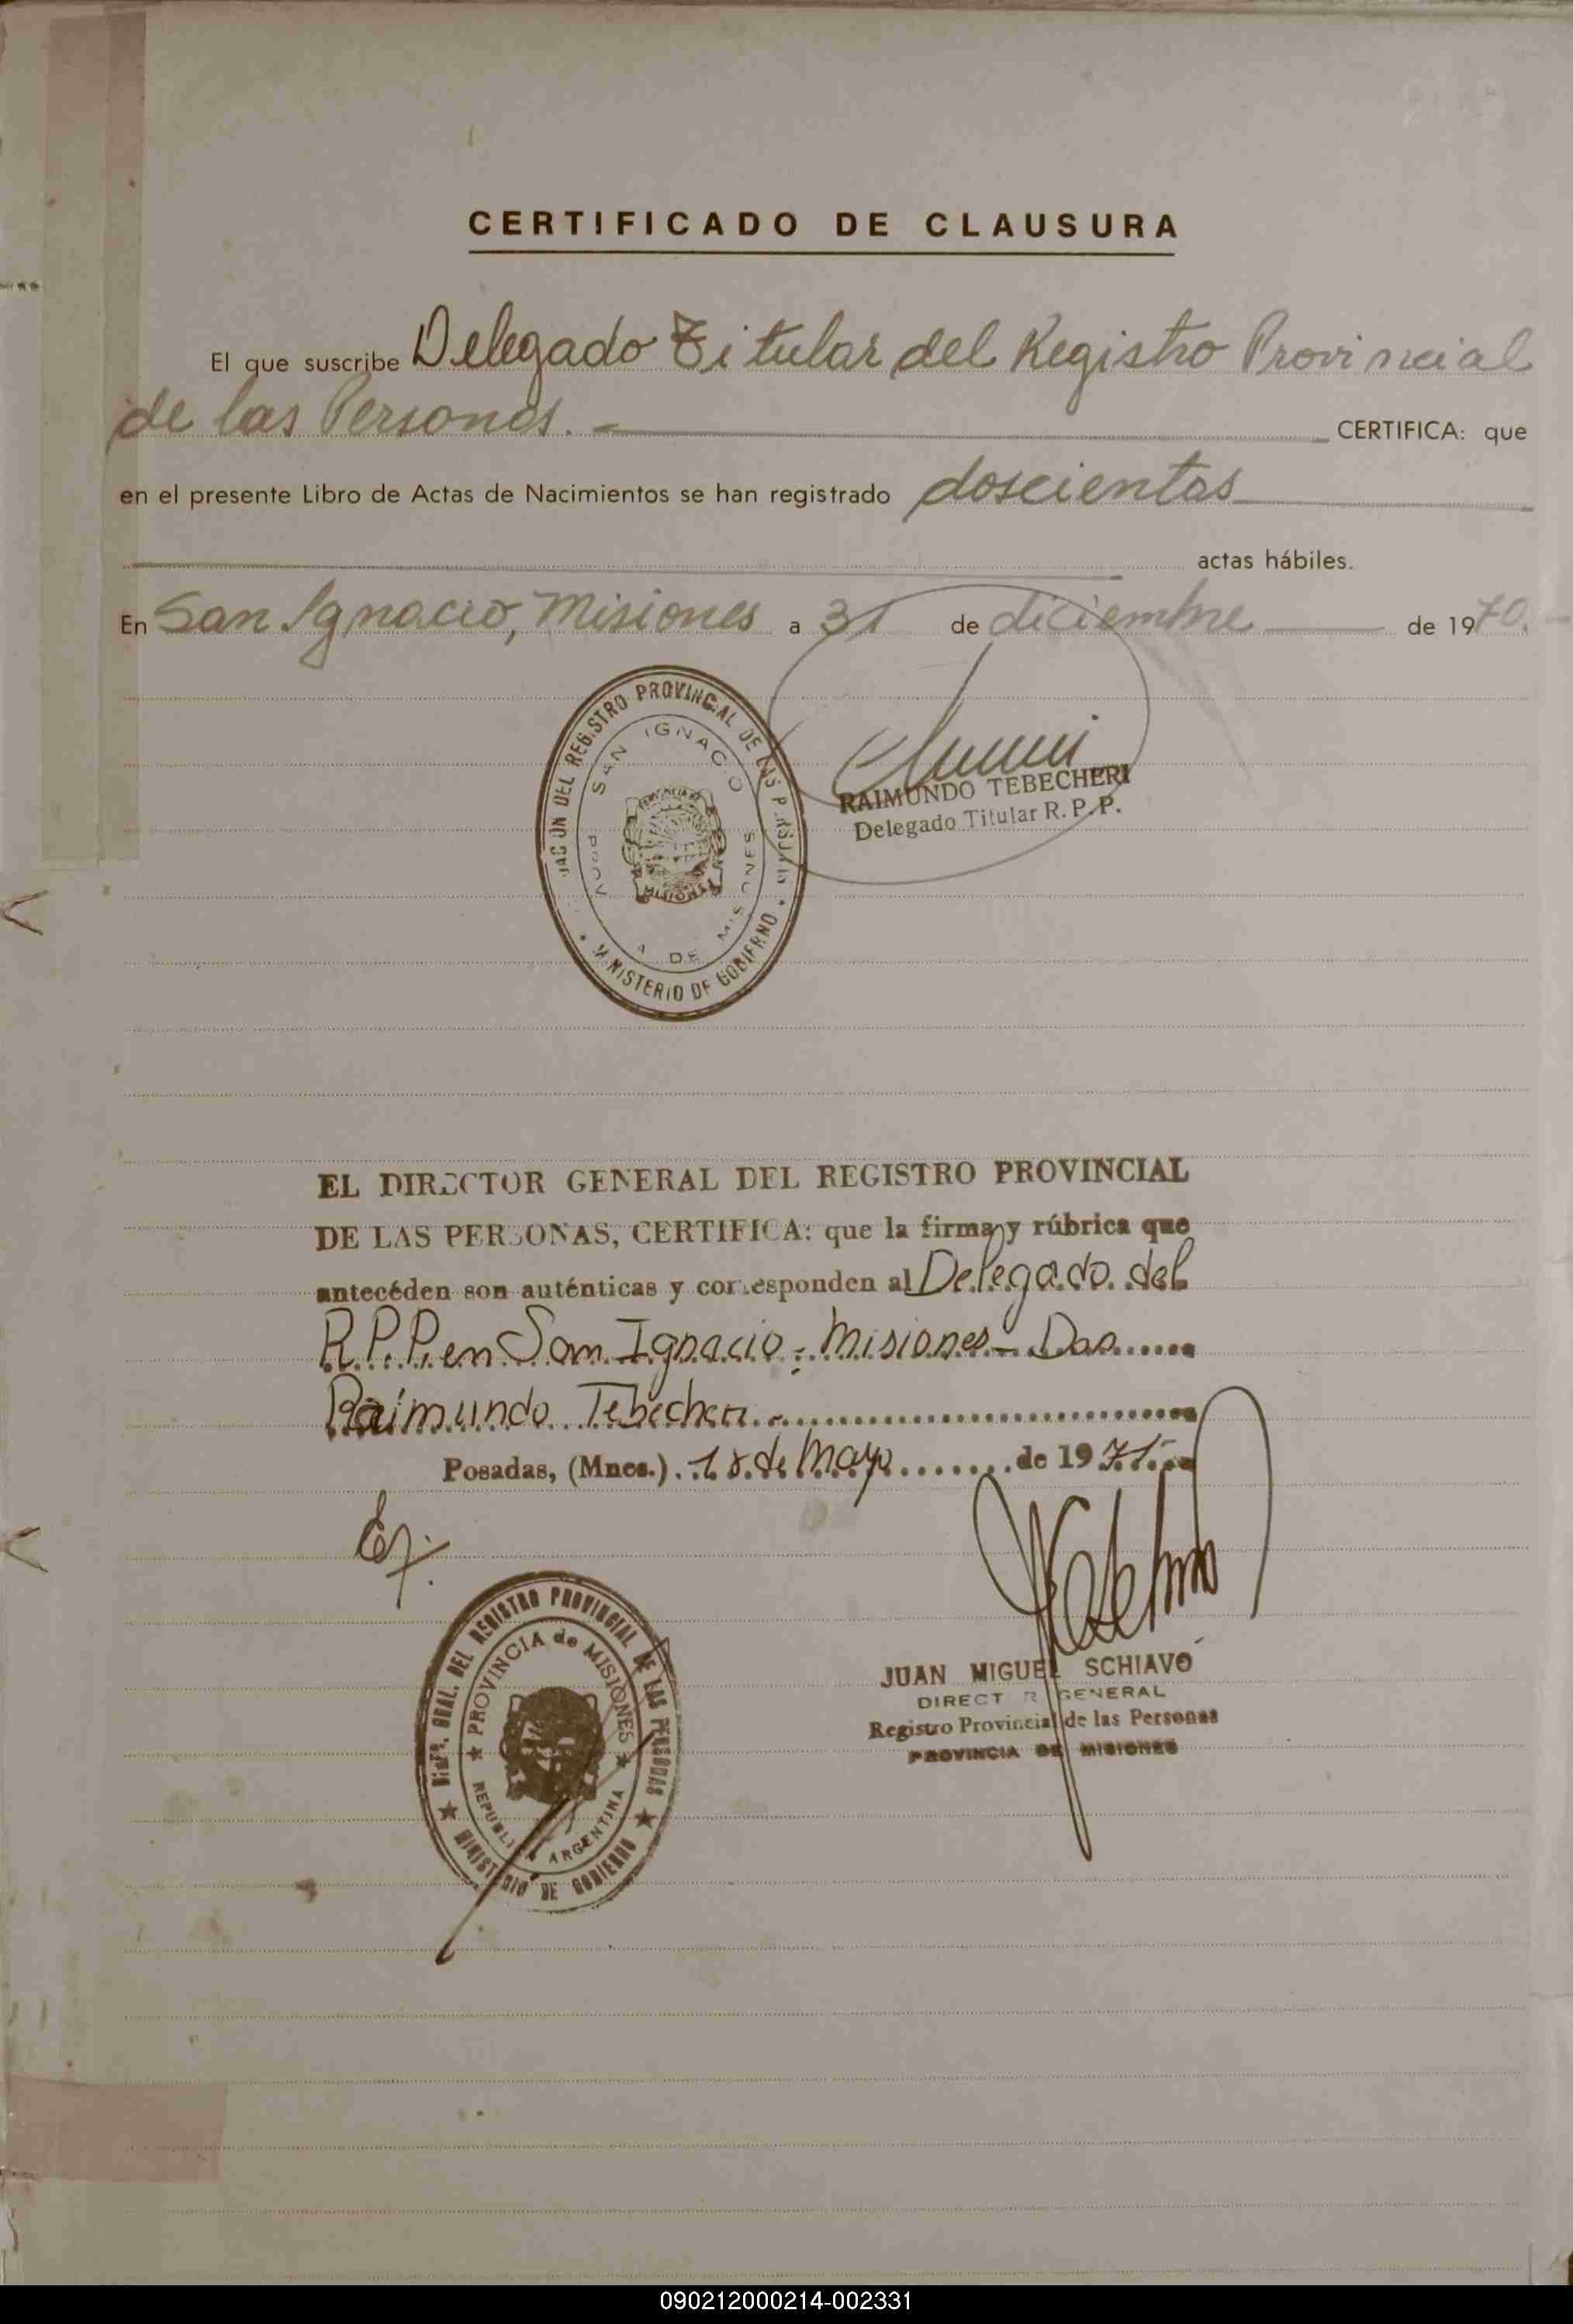 CERTIFICADO DE CLAUSURA
El que suscribe Delegado Titular del Registro Provincial
de las Personas. - CERTIFICA: que
en el presente Libro de Actas de Nacimientos se han registrado doscientas
actas hábiles.
En San Ignacio, Misiones a 31 de diciembre de 1970.
REGISTRO PROVINCIAL DE LAS PERSONAS
SAN IGNACIO
MISIONES
MINISTERIO DE GOBIERNO
RAIMUNDO TEBECHERI
Delegado Titular R. P. P.
EL DIRECTOR GENERAL DEL REGISTRO PROVINCIAL
DE LAS PERSONAS, CERTIFICA: que la firma y rúbrica que
antecéden son auténticas y corresponden al Delegado del
R.P.P. en San Ignacio - Misiones - Don
Raimundo Tebecheri.-
Posadas, (Mnes.) 18 de Mayo de 1971.-
DEL REGISTRO PROVINCIAL DE LAS PERSONAS
PROVINCIA de MISIONES
REPUBLICA ARGENTINA
MINISTERIO DE GOBIERNO
JUAN MIGUEL SCHIAVO
DIRECTOR GENERAL
Registro Provincial de las Personas
PROVINCIA DE MISIONES
090212000214-002331